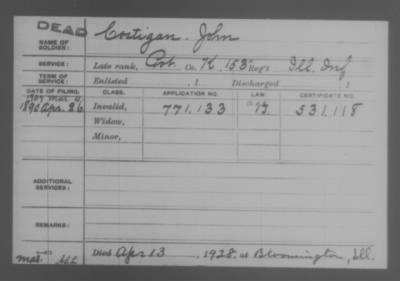 DEAD
NAME OF SOLDIER: Costigan. John
SERVICE: Late rank, Co. K, 153" Reg't Ill. Inf
TERM OF SERVICE: Enlisted , 1 Discharged , 1
DATE OF FILING. CLASS. APPLICATION NO. LAW. CERTIFICATE NO.
1907 Mar. 4,
1890 Apr. 26 Invalid, 771.133 531.118
Widow,
Minor,
ADDITIONAL SERVICES:
REMARKS:
Died Apr 13, 1928, at Bloomington, Ill.